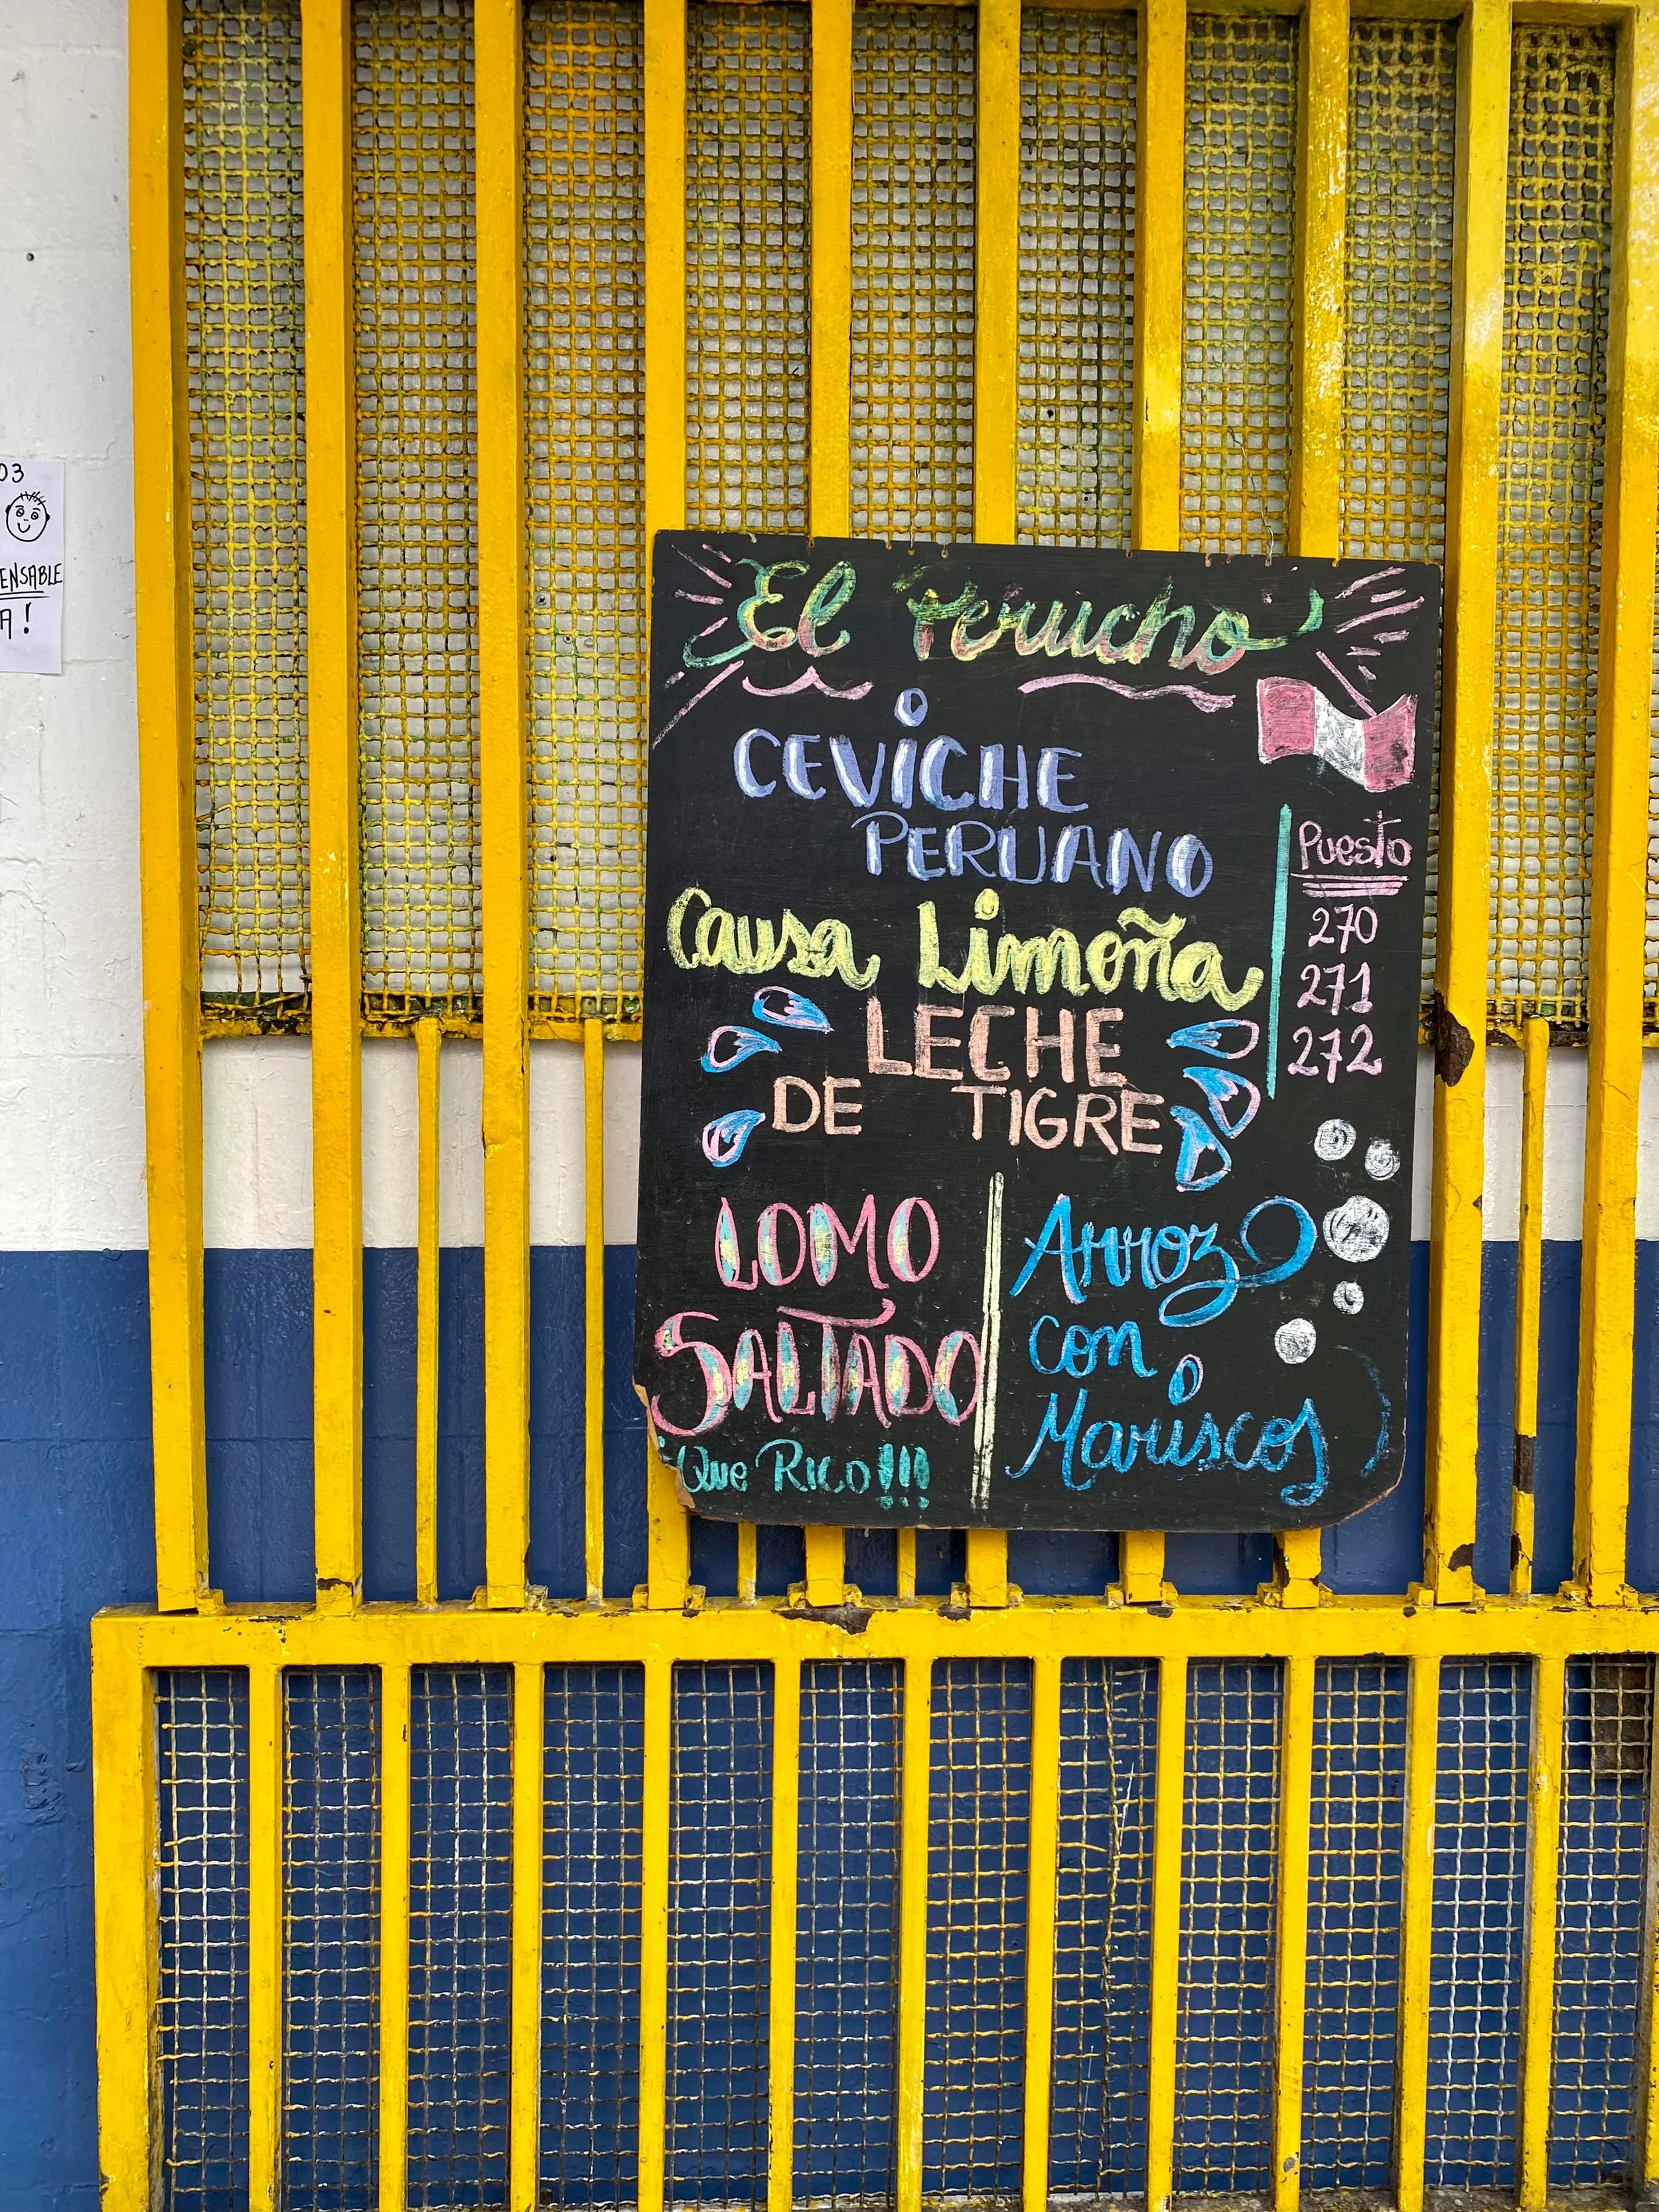 03
ENSABLE
A!
El Perucho
CEViCHE
PERUANO
Causa Limoña
LECHE
DE TIGRE
Puesto
270
271
272
LOMO
SALTADO
¡Que Rico!!!
Arroz
con
Mariscos